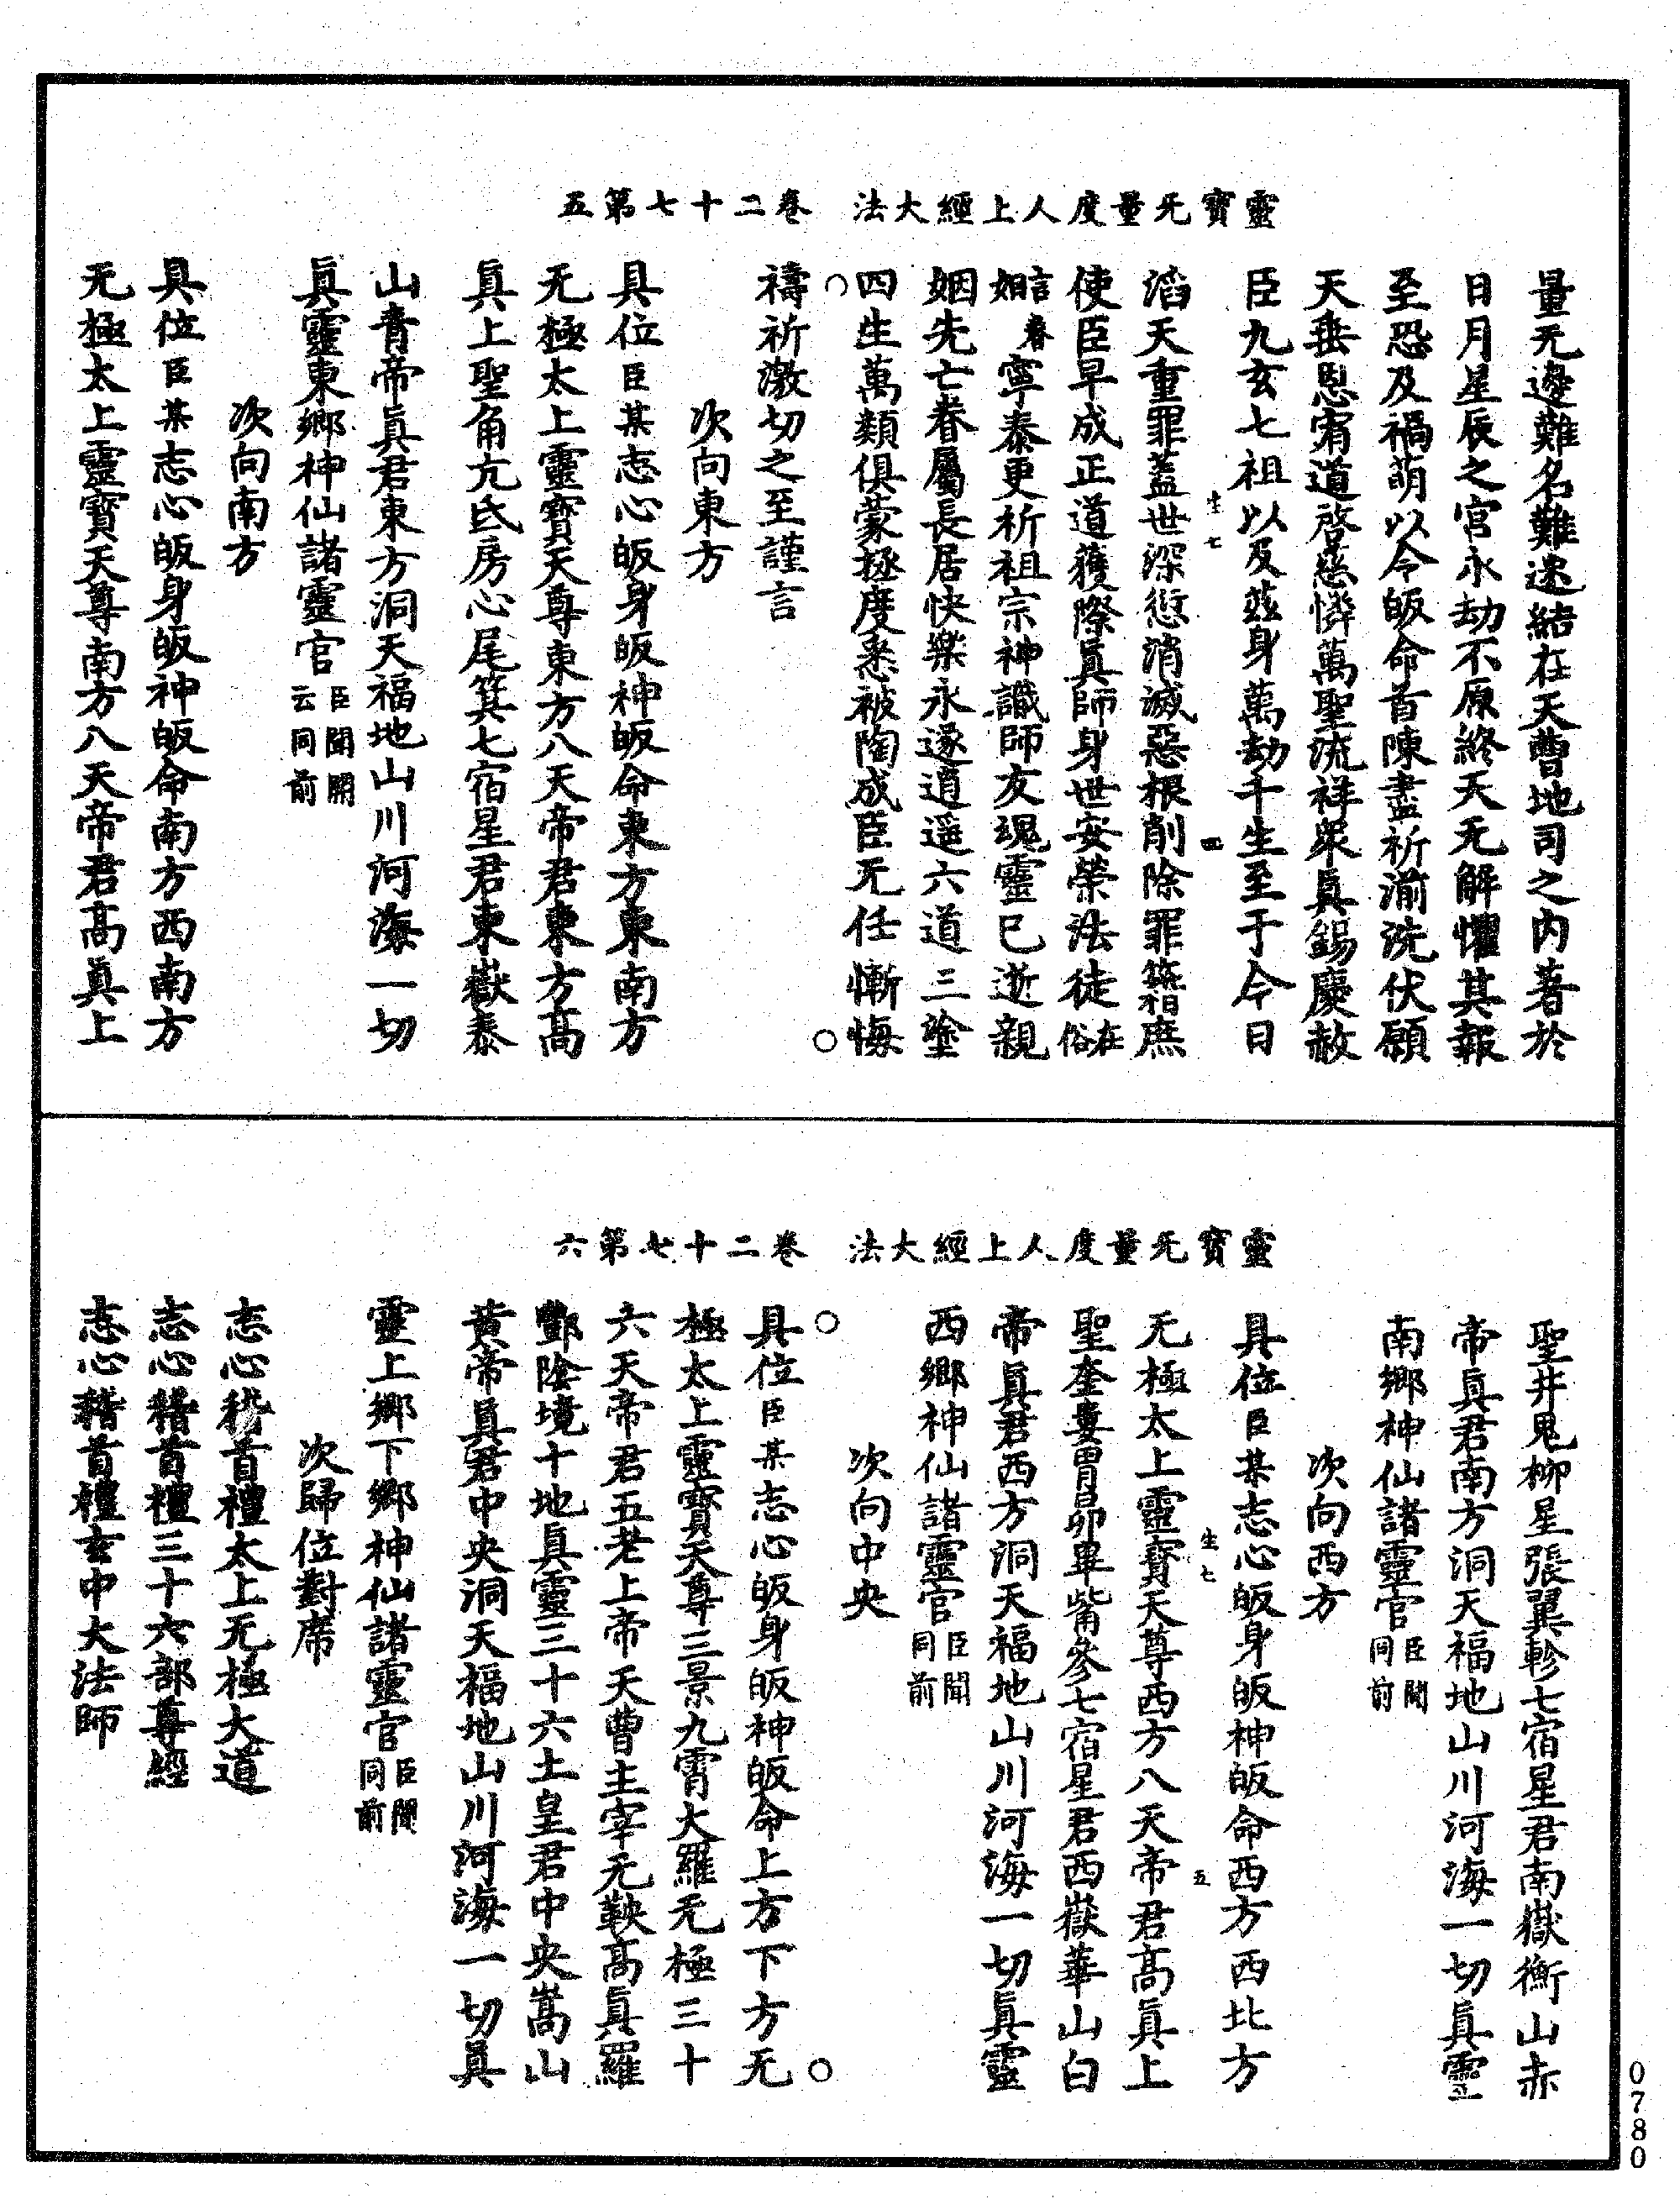 靈寶无量度人上經大法　卷二十七第五
量无邊難名難述結在天曹地司之內著於
日月星辰之宮永劫不原終天无解懼其報
至恐及禍萌以今皈命首陳盡祈湔洗伏願
天垂恩宥道啓慈憐萬聖流祥衆眞錫慶赦
臣九玄七祖以及茲身萬劫千生至于今日
生七　四
滔天重罪蓋世深愆消滅惡根削除罪籍庶
使臣早成正道獲際眞師身世安榮法徒在俗
言眷如日寧泰更祈祖宗神識師友魂靈已逝親
姻先亡眷屬長居快樂永遂逍遥六道三塗
四生萬類俱蒙拯度悉被陶成臣无任慚悔
禱祈激切之至謹言
次向東方
具位臣某志心皈身皈神皈命東方東南方
无極太上靈寶天尊東方八天帝君東方高
眞上聖角亢氐房心尾箕七宿星君東嶽泰
山青帝眞君東方洞天福地山川河海一切
眞靈東鄉神仙諸靈官臣聞開云同前
次向南方
具位臣某志心皈身皈神皈命南方西南方
无極太上靈寶天尊南方八天帝君高眞上
靈寶无量度人上經大法　卷二十七第六
聖井鬼柳星張翼軫七宿星君南嶽衡山赤
帝眞君南方洞天福地山川河海一切眞靈
南鄉神仙諸靈官臣聞同前
次向西方
具位臣某志心皈身皈神皈命西方西北方
生七　五
无極太上靈寶天尊西方八天帝君高眞上
聖奎婁胃昴畢觜參七宿星君西嶽華山白
帝眞君西方洞天福地山川河海一切眞靈
西鄉神仙諸靈官臣聞同前
次向中央
具位臣某志心皈身皈神皈命上方下方无
極太上靈寶天尊三景九霄大羅无極三十
六天帝君五老上帝天曹主宰无鞅高眞羅
酆陰境十地眞靈三十六土皇君中央嵩山
黄帝眞君中央洞天福地山川河海一切眞
靈上鄉下鄉神仙諸靈官臣聞同前
次歸位對席
志心稽首禮太上无極大道
志心稽首禮三十六部尊經
志心稽首禮玄中大法師
0780